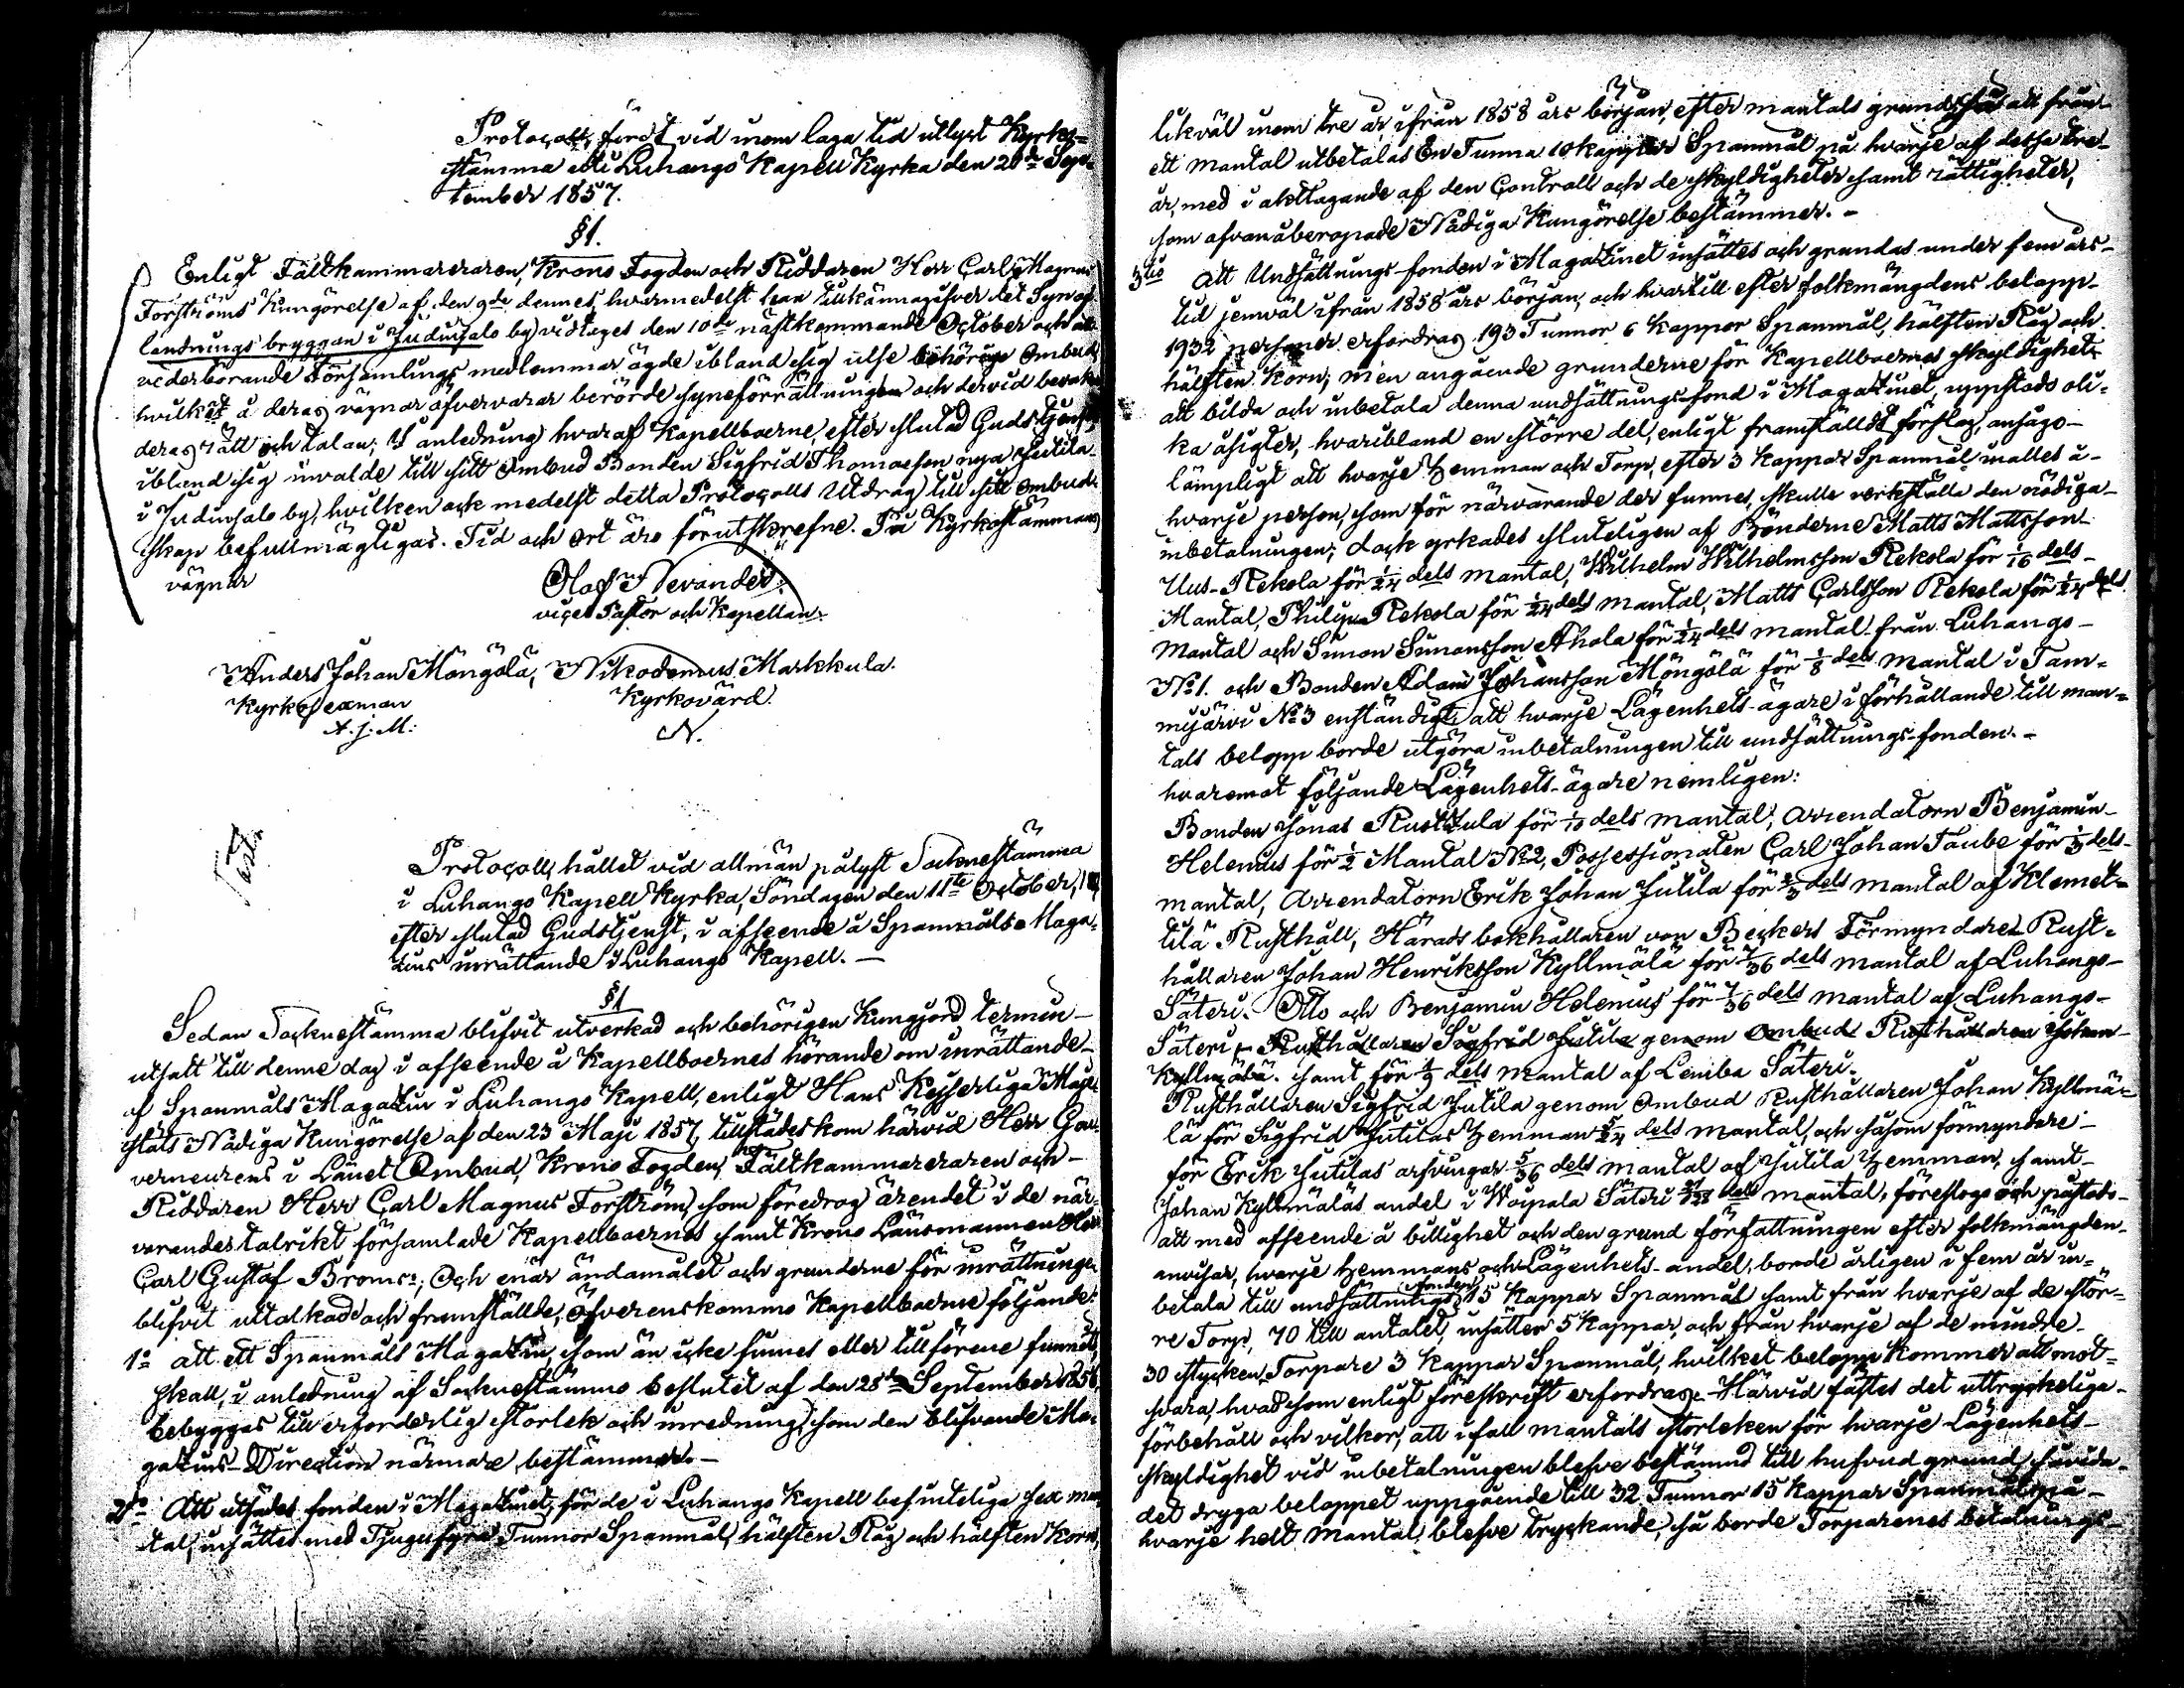 Protocoll, fördt vid inom laga tid utlyst Kyrko=
stämma uti Luhango Kapell Kyrka den 20de Sep=
tember 1857.
§1.
Enligt Fältkammereraren, Krono Fogden och Riddaren Herr Carl Magnus
Forströms Kungörelse af den 9de dennes, hvarmedelst han tillkännagifver det Syn af
landnings bryggan i Judinsalo by vidtages den 10de nästkommande October och att
vederbörande Församlings medlemmar ägde ibland sig utse behörige Ombud,
hvilket å deras vägnar öfvervarar berörde syneförrättningen och dervid bevaka
deras rätt och talan; I anledning hvaraf Kapellboerne, efter slutad Gudstjenst,
ibland sig invalde till sitt Ombud Bonden Sigfrid Thomasson nya Jutila
i Judinsalo by, hvilken ock medelst detta Protocolls Utdrag till sitt ombud=
skap befullmägtigas. Tid och Ort äro förutskrefne. På Kyrkostämmans
vägnar
Olof Nevander.
vice Pastor och Kapellan.
Anders Johan Möngölä, Nikodemus Markkula.
Kyrko sexman Kyrkovärd.
A. J. M. N.
Protocoll, hållet vid allmän pålyst Socknestämma
i Luhango Kapell Kyrka, Söndagen den 11te October,
efter slutad Gudstjenst, i afseende å Spanmåls Maga=
zins inrättande i Luhango Kapell. —
§1
Sedan Socknestämma blifvit utverkad och behörigen Kungjord termin—
utsatt till denne dag i afseende å Kapellboernes hörande om inrättande—
af Spanmåls Magazin i Luhango Kapell, enligt Hans Kejserliga Maje=
stäts Nådiga Kungörelse af den 23 Maji 1857, tillstädeskom härvid Herr Gou=
verneurens i Länet Ombud, Krono Fogden, Fältkammereraren och—
Riddaren Herr Carl Magnus Forström, som föredrog ärendet i de när=
varandes talrikt församlade Kapellboernes samt Krono Länsmannen Herr
Carl Gustaf Broms; Och enär ändamålet och grunderne för inrättningen
blifvit uttolkade och framställde, öfverenskommo Kapellboerne följande:
1o att ett Spanmåls Magazin, som än icke finnes eller tillförene funnits,
skall, i anledning af Sockneståmmo beslutet af den 28de September 1856,
bebyggas till erforderlig storlek och inredning, som den blifvande Ma=
gazins-Direction närmare bestämmer. —
2do Att utsädes fonden i Magazinet, för de i Luhango Kapell befinteliga sex man
tal, insättes med Tjugufyra Tunnor Spanmål, hälften Råg och hälften Korn,
likväl inom tre år ifrån 1858 års början, efter mantals grund, så att från
ett mantal utbetalas En Tunna 10 kappar Spanmål på hvarje af dessa tre—
år, med i akttagande af den Controll och de skyldigheter samt rättigheter,
som ofvanåberopade Nådiga Kungörelse bestämmer. —
3tio Att Undsättnings-fonden i Magazinet insättes och grundas under fem års—
tid jemväl ifrån 1858 års början, och hvartill efter folkmängdens belopp—
1932 personer erfordras 193 Tunnor 6 kappor Spanmål, hälften Råg och
hälften Korn; men angående grunderne för Kapellboernes skyldighet
att bilda och inbetala denna undsättningsfond i Magazinet, uppstods oli=
ka åsigter, hvaribland en större del, enligt framställdt förslag, ansågo—
lämpligt att hvarje Hemman och Torp, efter 3 kappar Spanmål mattet å—
hvarje person, som för närvarande der funnes, skulle verkställa den nödiga—
inbetalningen; dock yrkades sluteligen af Bönderne Matts Mattsson—
Uus-Rekola för 1/24 dels mantal, Wilhelm Wilhelmsson Rekola för 1/16 dels—
Mantal, Philip Rekola för 1/24 dels mantal, Matts Carlsson Rekola för 1/24 dels
Mantal och Simon Simonsson Ahola för 1/24 dels mantal från Luhango—
No 1. och Bonden Adam Johansson Möngölä för 1/8 dels mantal i Tam=
mijärvi No 3 enständigt, att hvarje Lägenhets-ägare i förhållande till man=
tals belopp borde utgöra inbetalningen till undsättnings-fonden. —
hvaremot följande Lägenhets-ägare nemligen:
Bonden Jonas Rusthula för 1/10 dels mantal, Arrendatorn Benjamin—
Helenius för 1/2 Mantal No 2, Possessionaten Carl Johan Taube för 1/3 dels—
mantal, Arrendatorn Erik Johan Jutila för 2/3 dels mantal af Klemet=
tilä Rusthåll, Härads bokhållaren von Beckers Förmyndare Rust=
hållaren Johan Henriksson Kyllmälä för 7/36 dels mantal af Luhango—
Säteri. Otto och Benjamin Helenius för 7/36 dels mantal af Luhango—
Säteri, Rusthållaren Sigfrid Jutila genom Ombud Rusthållaren Johan—
Kyllmälä. samt för 1/2 dels mantal af Lemba Säteri.
Rusthållaren Sigfrid Jutila genom Ombud Rusthållaren Johan Kyllmä=
lä för Sigfrid Jutilas Hemman 5/24 dels mantal, och såsom förmyndare—
för Erik Jutilas arfvingar 5/36 dels mantal af Jutila Hemman, samt—
Johan Kyllmäläs andel i Woipala Säteri dels mantal, föreslogo och påstodo—
att med afseende å billighet och den grund författningen efter folkmängden
anvisar, hvarje Hemmans och Lägenhets-andel, borde årligen i fem år in=
betala till undsättnings fonden 15 kappar Spanmål samt från hvarje af de stör=
re Torp, 70 till antalet, insättes 5 kappar, och från hvarje af de mindre—
30 stycken, Torpare 3 kappar Spanmål, hvilket belopp kommer att mot=
svara, hvad som enligt föreskrift erfordras. Härvid fästes det uttryckeliga—
förbehåll och vilkor, att ifall mantals storleken för hvarje Lägenhets—
skyldighet vid inbetalningen blefve bestämnd till hufvud grund, hvarvid
det dryga beloppet uppgående till 32 Tunnor 15 kappar Spanmål på—
hvarje helt Mantal, blefve tryckande, så borde Torparenes betalnings—